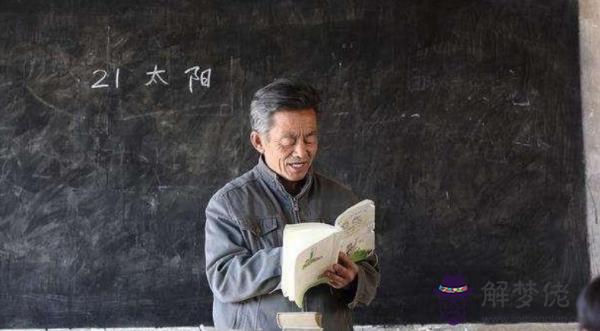 21 太阳
解梦佬